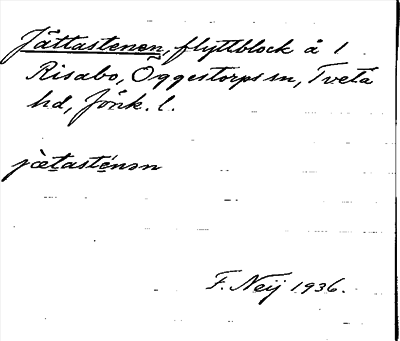 Jättastenen, flyttblock å 1
Risabo, Öggestorps sn, Tveta
hd, Jönk. l.
jætastenən
F. Neij 1936.